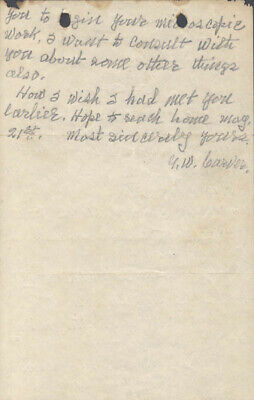 you to begin your microscopic
work. I want to consult with
you about some other things
also.
How I wish I had met you
earlier. Hope to reach home may
21st. Most sincerely yours,
G. W. Carver.